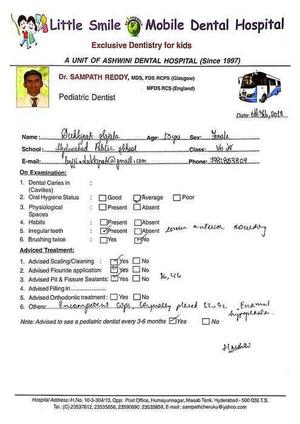 Little Smile Mobile Dental Hospital
Exclusive Dentistry for kids
A UNIT OF ASHWINI DENTAL HOSPITAL (Since 1997)
Dr. SAMPATH REDDY, MDS, FDS RCPS (Glasgow)
MFDS RCS (England)
Pediatric Dentist
Date:
Name: Age: 10 yrs Sex: Female
School: Hyderabad Public School Class:
E-mail: @gmail.com Phone:
On Examination:
1. Dental Caries in (Cavities) :
2. Oral Hygiene Status : Good Average Poor
3. Physiological Spaces : Present Absent
4. Habits : Present Absent
5. Irregular teeth : Present Absent lower anterior crowding
6. Brushing twice : Yes No
Adviced Treatment:
1. Advised Scaling/Cleaning : Yes No
2. Advised Flouride application: Yes No
3. Advised Pit & Fissure Sealants: Yes No 36,46
4. Advised Filling
5. Advised Orthodontic treatment : Yes No
6. Others: Incompetent lips, placed Enamel
hypoplasia
Note: Advised to see a pediatric dentist every 3-6 months Yes No
Hospital Address:-H.No. 10-3-304/13, Opp. Post Office, Humayunnagar, Masab Tank, Hyderabad - 500 028 T.S.
Tel: (C) 23537612, 23535656, 23590690, 23535858, E-mail : sampathcheruku@yahoo.com